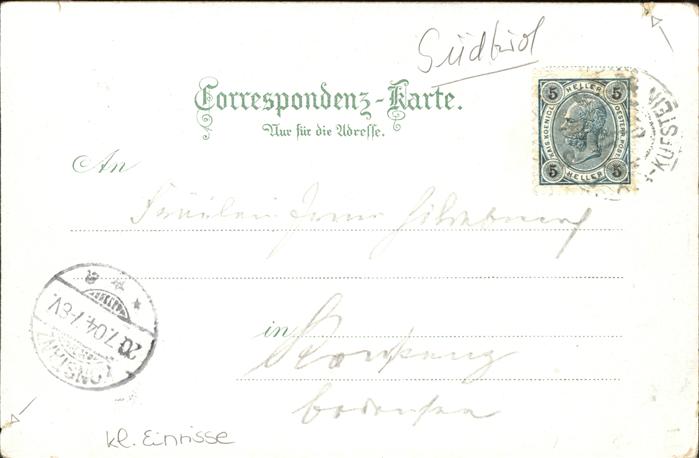 Südtirol
Correspondenz-Karte.
Nur für die Adresse.
5 HELLER 5
KAIS. KOENIGL. OESTERR. POST
5 HELLER 5
KUFSTEIN
An
Fräulein
20.7.04.7-8V.
KONSTANZ
in
Konstanz
Bodensee
kl. Einrisse